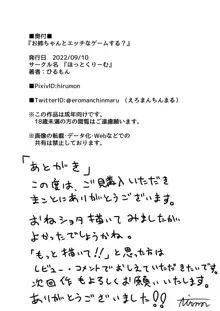 ■奥付■
『お姉ちゃんとエッチなゲームする?』
発行日　2022/09/10
サークル名 『ほっとくりーむ』
著者：ひるもん
■PixivID:hirumon
■TwitterID:@eromanchinmaru （えろまんちんまる）
※この作品は成年向け
18歳未満の方の閲覧はご遠慮願います。
※画像の無断転載･データ化･Webなどでの
共有は禁止しております。
「あとがき」
この度は、ご購入いただき
まことにありがとうございます。
おねショタ描いてみましたが、
よかったでしょうかね。
「もっと描いて!!」と思った方は
レビュー・コメントでおしえていただきたいです。
次回作もよろしくお願いいたします。
ありがとうございました!!
hirumon